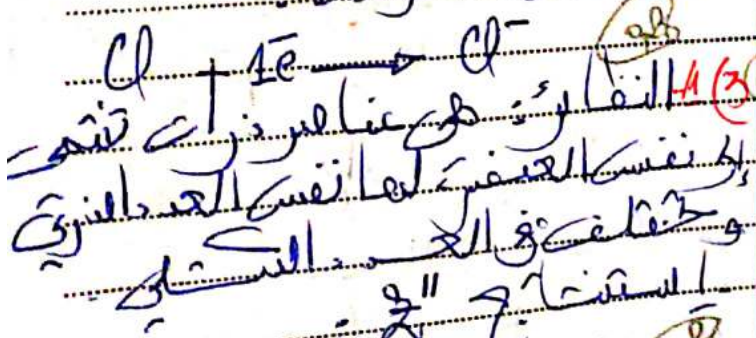 Cl + 1e⁻ → Cl⁻
3) النظائر: هي عناصر ذرات تنتمي
إلى نفس العنصر لها نفس العدد الذري
وتختلف في العدد الكتلي.
الاستنتاج